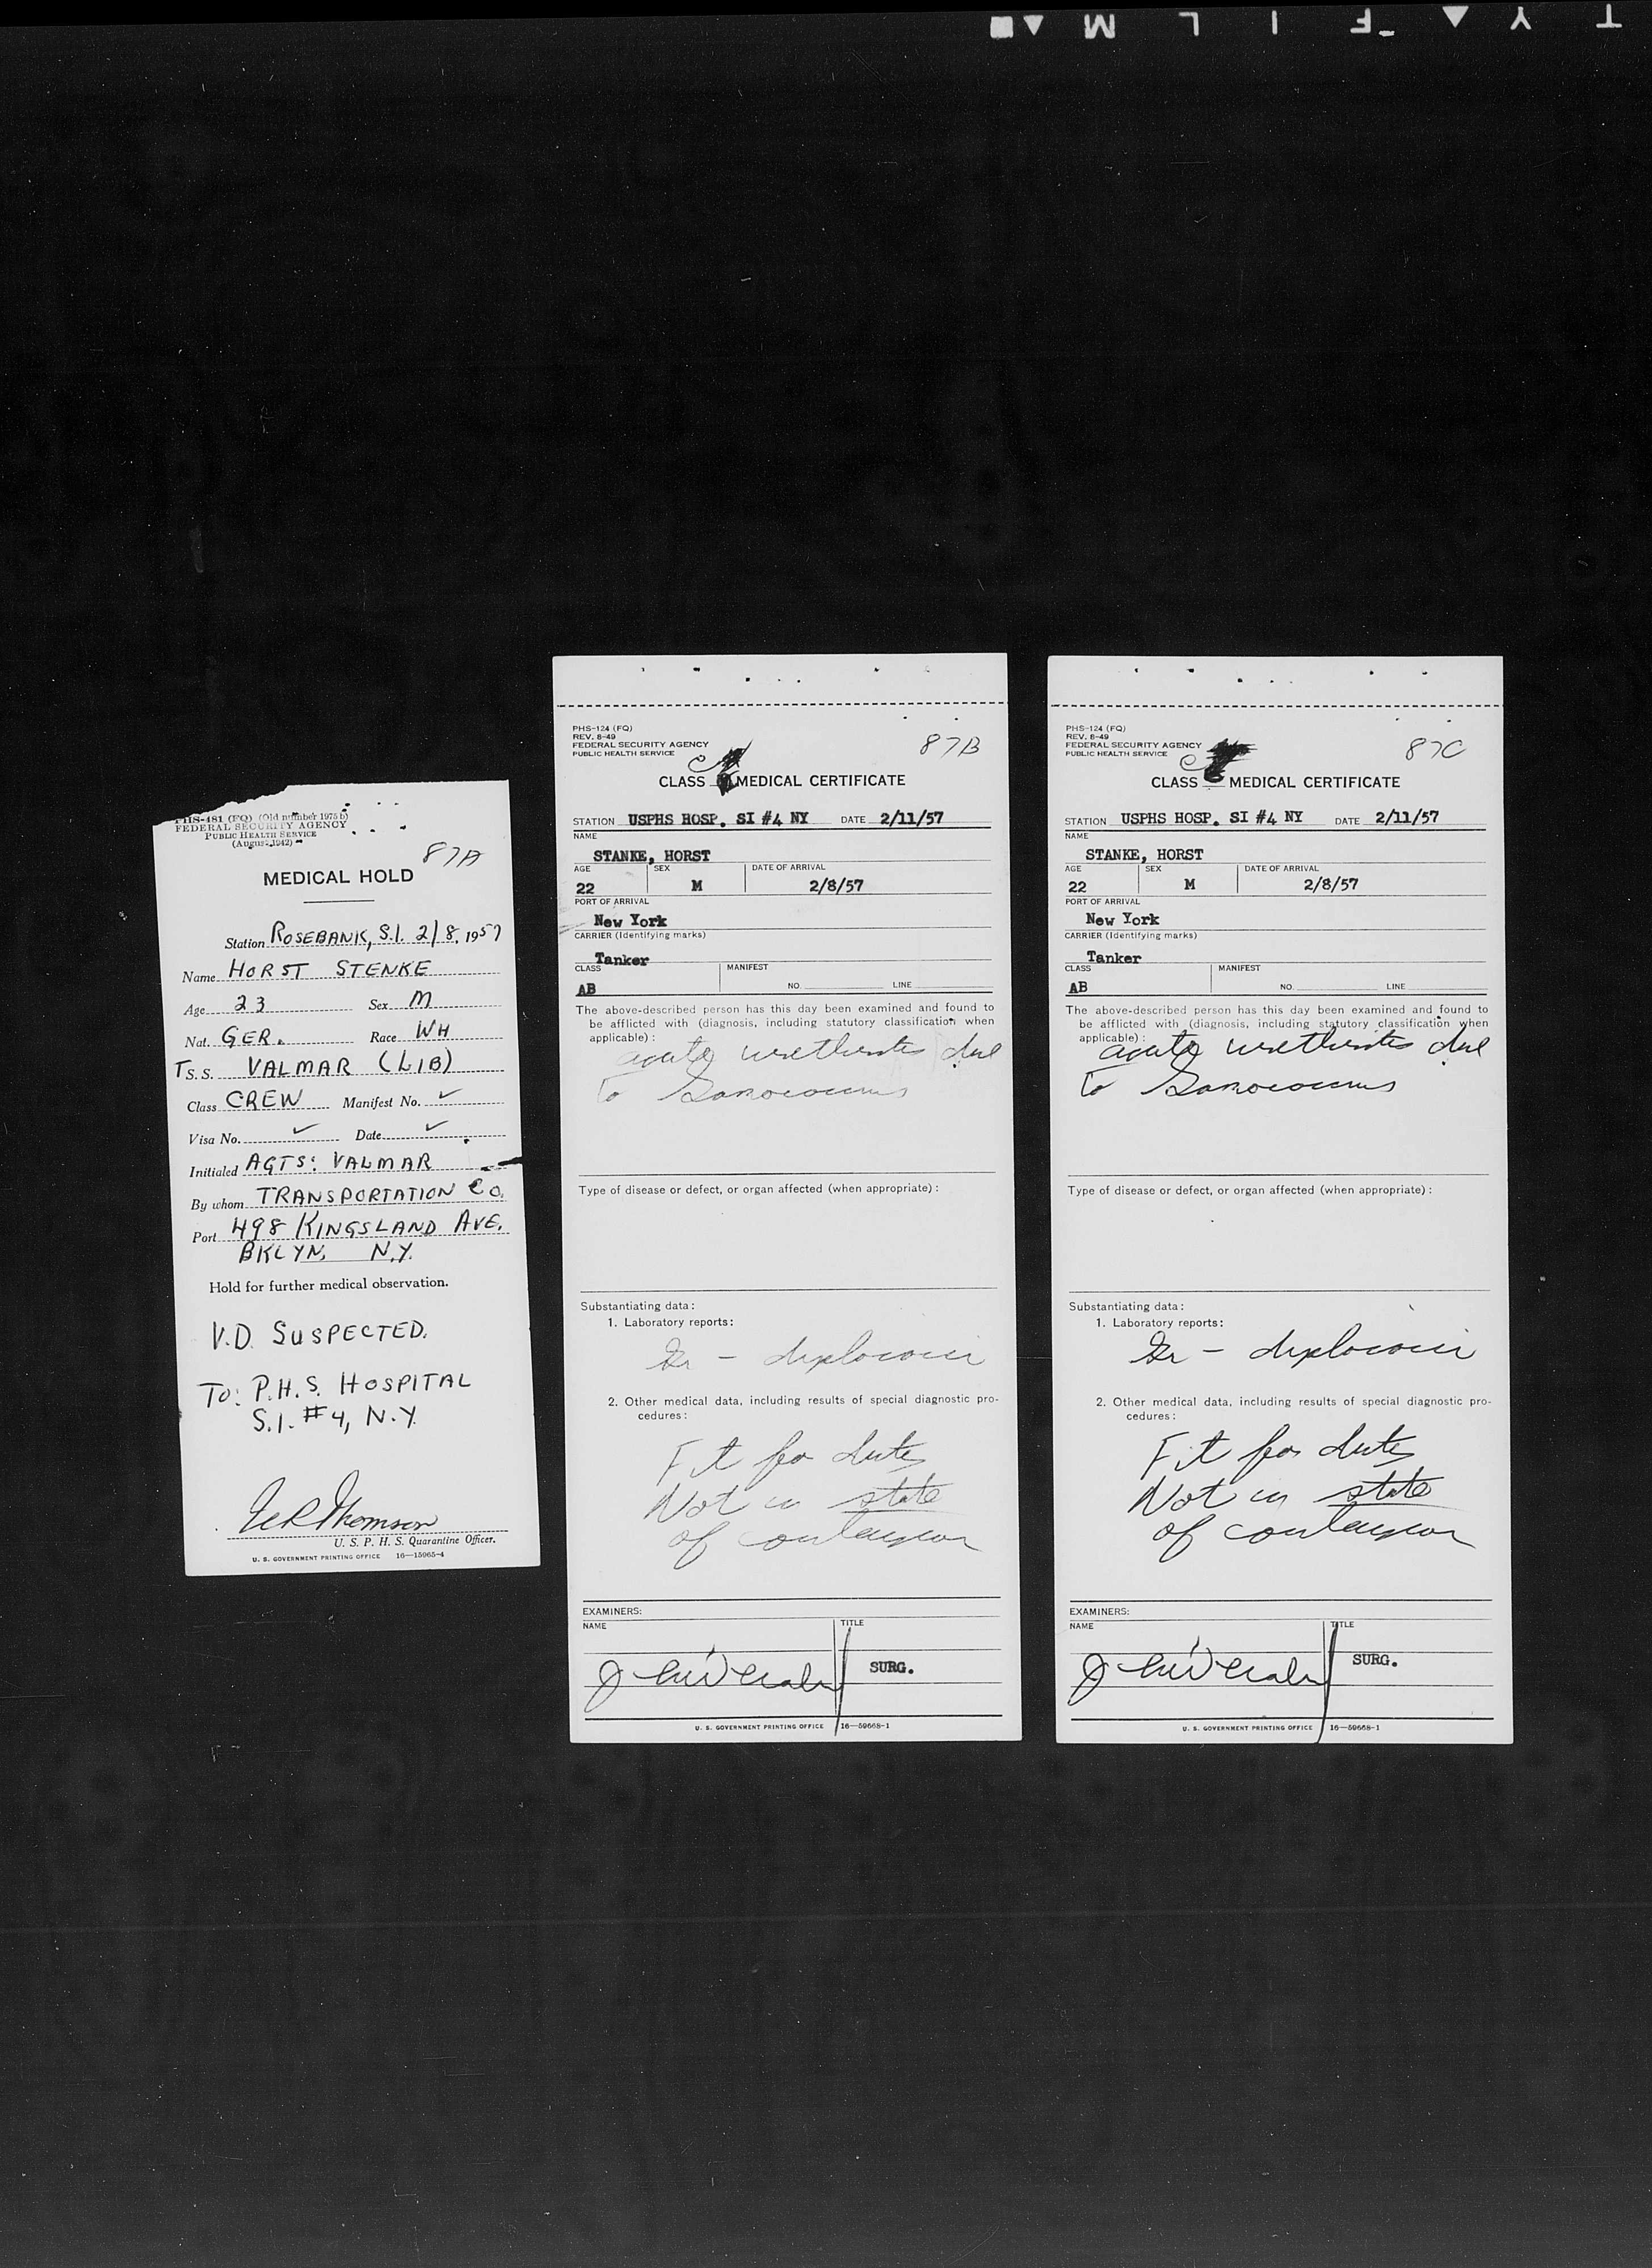 PHS-481 (FQ) (Old number 1975 b)
FEDERAL SECURITY AGENCY
PUBLIC HEALTH SERVICE
(August 1942)
87A
MEDICAL HOLD
Station ROSEBANK, S.I. 2/8, 1957
Name HORST STENKE
Age 23 Sex M
Nat. GER. Race WH
T S. S. VALMAR (LIB)
Class CREW Manifest No. ✓
Visa No. ✓ Date ✓
Initialed AGTS: VALMAR
By whom TRANSPORTATION CO.
Port 498 KINGSLAND AVE.
BKLYN. N.Y.
Hold for further medical observation.
V.D. SUSPECTED.
TO: P.H.S. HOSPITAL
S.I. #4, N.Y.
Thomson
U. S. P. H. S. Quarantine Officer.
U. S. GOVERNMENT PRINTING OFFICE 16—15965-4
PHS-124 (FQ)
REV. 8-49
FEDERAL SECURITY AGENCY
PUBLIC HEALTH SERVICE
87B
C
CLASS MEDICAL CERTIFICATE
STATION USPHS HOSP. SI #4 NY DATE 2/11/57
NAME
STANKE, HORST
AGE SEX DATE OF ARRIVAL
22 M 2/8/57
PORT OF ARRIVAL
New York
CARRIER (Identifying marks)
Tanker
CLASS MANIFEST
AB NO. LINE
The above-described person has this day been examined and found to
be afflicted with (diagnosis, including statutory classification when
applicable):
acute urethritis due
to Gonococcus
Type of disease or defect, or organ affected (when appropriate):
Substantiating data:
1. Laboratory reports:
Gr - diplococci
2. Other medical data, including results of special diagnostic pro-
cedures:
Fit for duty
Not in state
of contagion
EXAMINERS:
NAME TITLE
SURG.
U. S. GOVERNMENT PRINTING OFFICE 16—59668-1
PHS-124 (FQ)
REV. 8-49
FEDERAL SECURITY AGENCY
PUBLIC HEALTH SERVICE
87C
C
CLASS MEDICAL CERTIFICATE
STATION USPHS HOSP. SI #4 NY DATE 2/11/57
NAME
STANKE, HORST
AGE SEX DATE OF ARRIVAL
22 M 2/8/57
PORT OF ARRIVAL
New York
CARRIER (Identifying marks)
Tanker
CLASS MANIFEST
AB NO. LINE
The above-described person has this day been examined and found to
be afflicted with (diagnosis, including statutory classification when
applicable):
acute urethritis due
to Gonococcus
Type of disease or defect, or organ affected (when appropriate):
Substantiating data:
1. Laboratory reports:
Gr - diplococci
2. Other medical data, including results of special diagnostic pro-
cedures:
Fit for duty
Not in state
of contagion
EXAMINERS:
NAME TITLE
SURG.
U. S. GOVERNMENT PRINTING OFFICE 16—59668-1